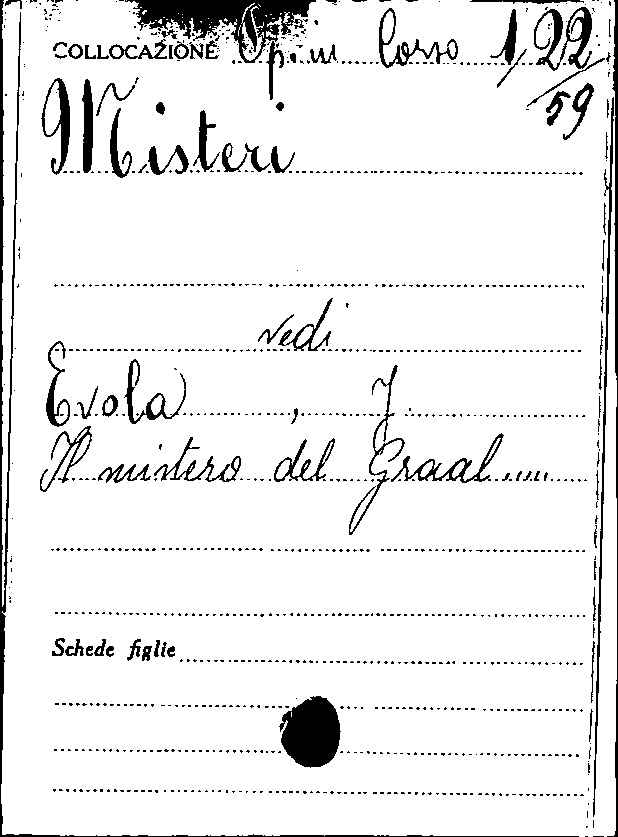 COLLOCAZIONE Op. in Corso 1/22/59
Misteri
vedi
Evola, J.
Il mistero del Graal.....
Schede figlie